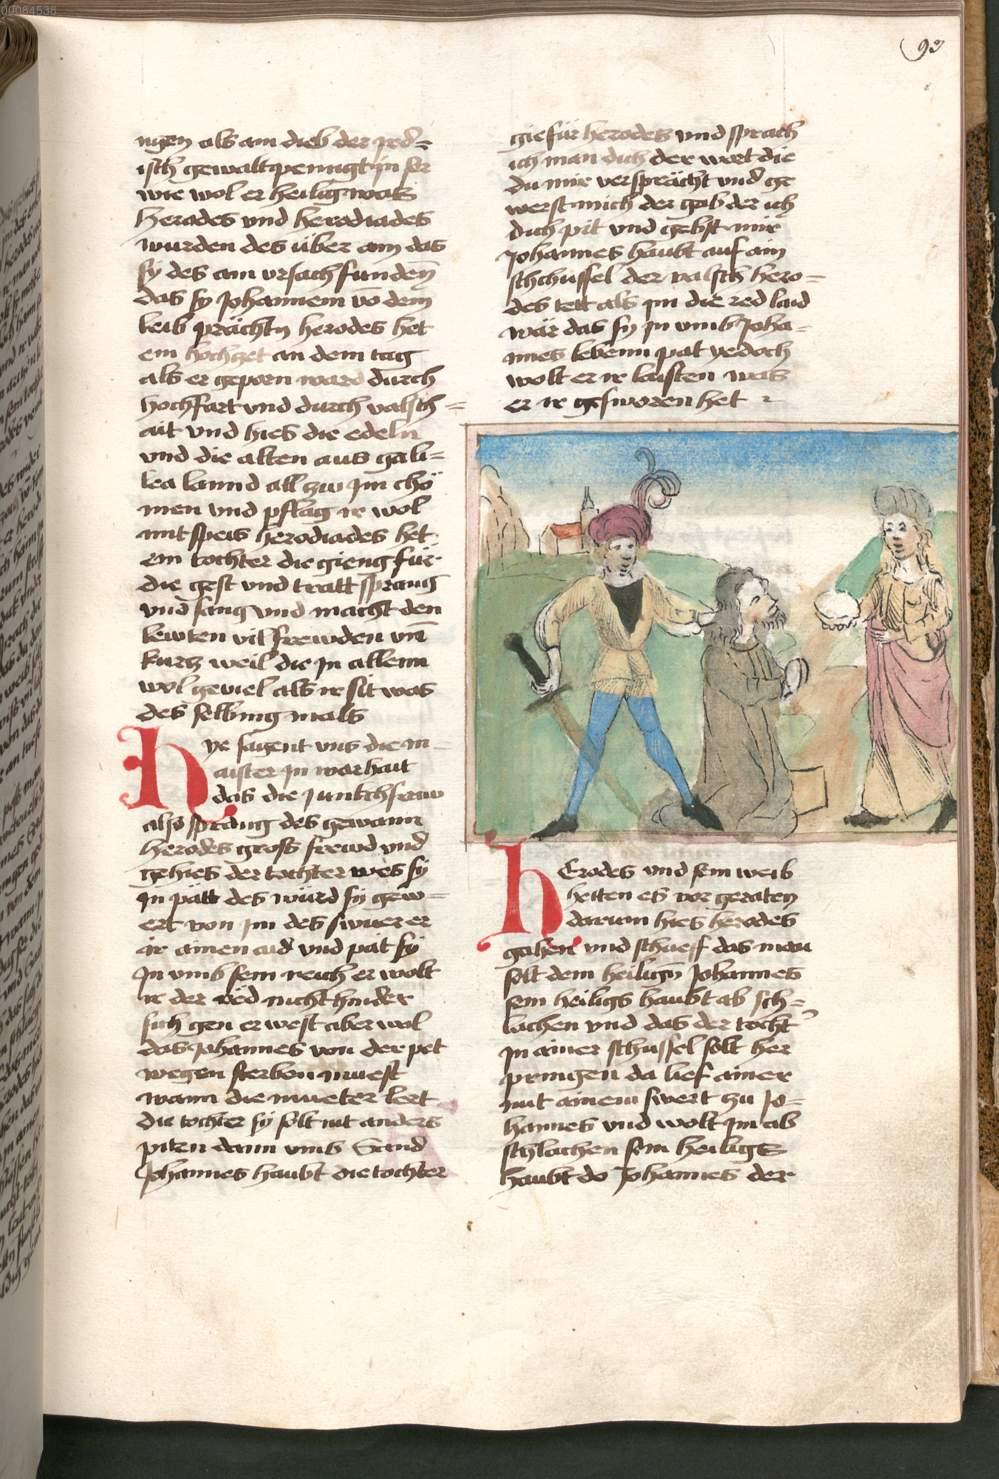 00084538
93
mgen als am dieb der ird=
isch gewalt penigt in ser
wie wol er heilig was
Herodes und herodiades
wurden des uber ain das
sy des ain ursach funden
das sy Johannem vo dem
leib prächtn herodes het
ein hochzet an dem tag
als er geporn ward durch
hochfart und durch valsch=
ait und hies die edeln
und die alten aus gali=
lea lannd all zw Jm chö
men und pflag ir wol
mit speis herodiades het
ein tochter die gieng für
die gest und tratt sprang
und sang und macht den
lewten vil frewden vnd
kurtz weil die Jn allenn
wol geviel als ir sit was
des selbing mals
Hye sagent uns die m
aister Jn warhait
das die Junkchfraw
also sprang des gewann
Herodes gross frewd und
gehies der tochter wes sy
Jn pätt des würd sy gew=
ert von Jm des swuer er
ir ainen aid und pat sy
Jn umb sein reich er wolt
ir der red nicht hinder
sich gen er west aber wol
das Johannes von der pet
wegen sterben muest
wann die mueter lert
die tochter sy solt nit anders
piten dann umb Sand
Johannes haubt die tochter
gie für herodes und sprach
ich man dich der wort die
du mir verspräch und ge
werst mich der gab der ich
dich pit und gebst mir
Johannes haubt auf ain
schchussel der valsch hero=
des tett als Jm die red laid
wär das sy Jn umb Joha=
nnes lebenn pat yedoch
wolt er ir laisten was
er ir gesworen het
HErodes und sein weib
hetten es vor geraten
darum hies herodes
gahen und schueff das man
solt dem heilign Johannes
sein heiligs haubt ab sch=
lachen und das der tocht
Jn ainer schussel solt her
pringen da lief ainer
mit ainem swert zu Jo=
hannes und wolt Jm ab
schlachen sein heiligs
haubt do Johannes der